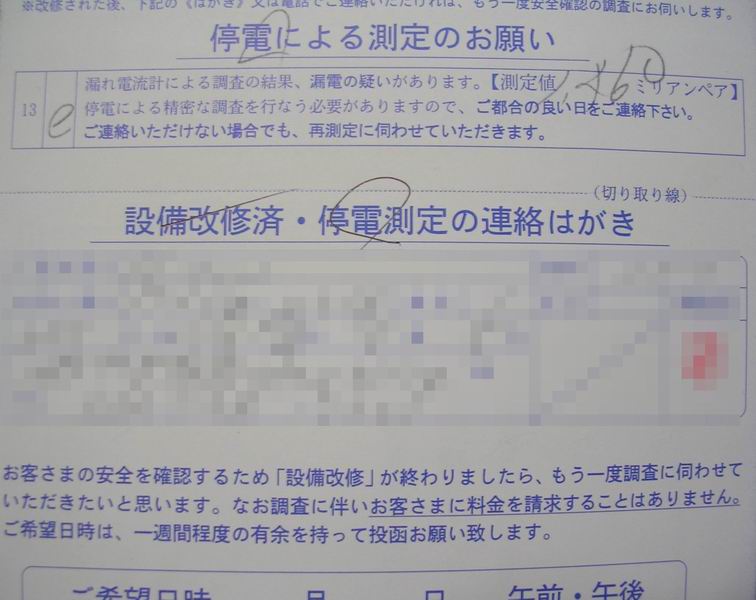 ※改修された後、下記の《はがき》又は電話でご連絡いただければ、もう一度安全確認の調査にお伺いします。
停電による測定のお願い
13 e 漏れ電流計による調査の結果、漏電の疑いがあります。【測定値 ミリアンペア】
停電による精密な調査を行なう必要がありますので、ご都合の良い日をご連絡下さい。
ご連絡いただけない場合でも、再測定に伺わせていただきます。
(切り取り線)
設備改修済・停電測定の連絡はがき
お客さまの安全を確認するため「設備改修」が終わりましたら、もう一度調査に伺わせて
いただきたいと思います。なお調査に伴いお客さまに料金を請求することはありません。
ご希望日時は、一週間程度の有余を持って投函お願い致します。
ご希望日時 月 日 午前・午後